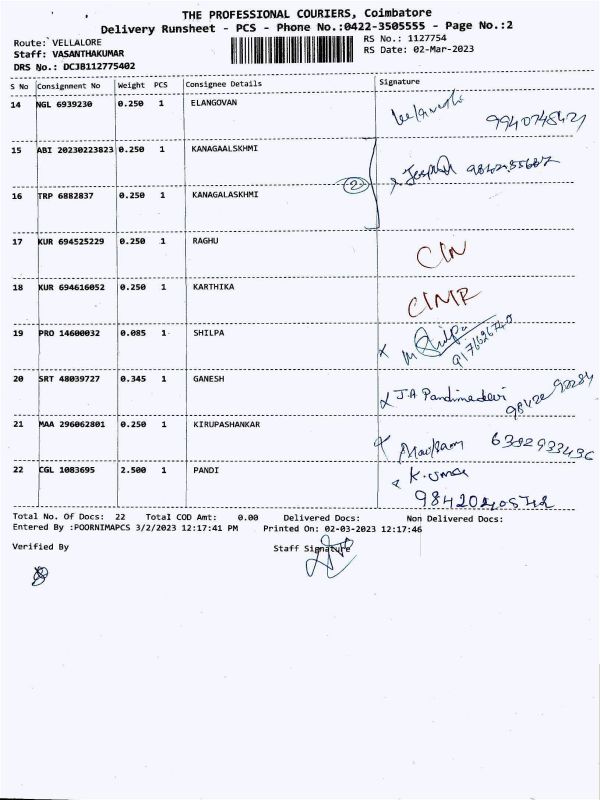 THE PROFESSIONAL COURIERS, Coimbatore
Delivery Runsheet - PCS - Phone No.:0422-3505555 - Page No.:2
Route: VELLALORE
RS No.: 1127754
Staff: VASANTHAKUMAR
RS Date: 02-Mar-2023
DRS No.: DCJB112775402
S No Consignment No Weight PCS Consignee Details Signature
14 NGL 6939230 0.250 1 ELANGOVAN
9940748421
15 ABI 20230223823 0.250 1 KANAGAALSKHMI
Joseph
2
16 TRP 6882837 0.250 1 KANAGALASKHMI
17 KUR 694525229 0.250 1 RAGHU
18 KUR 694616052 0.250 1 KARTHIKA
19 PRO 14600032 0.085 1 SHILPA Shilpa
20 SRT 48039727 0.345 1 GANESH
J.A Pandimadevi
21 MAA 296062801 0.250 1 KIRUPASHANKAR
6382933436
22 CGL 1083695 2.500 1 PANDI
Total No. Of Docs: 22 Total COD Amt: 0.00 Delivered Docs: Non Delivered Docs:
Entered By :POORNIMAPCS 3/2/2023 12:17:41 PM Printed On: 02-03-2023 12:17:46
Verified By Staff Signature